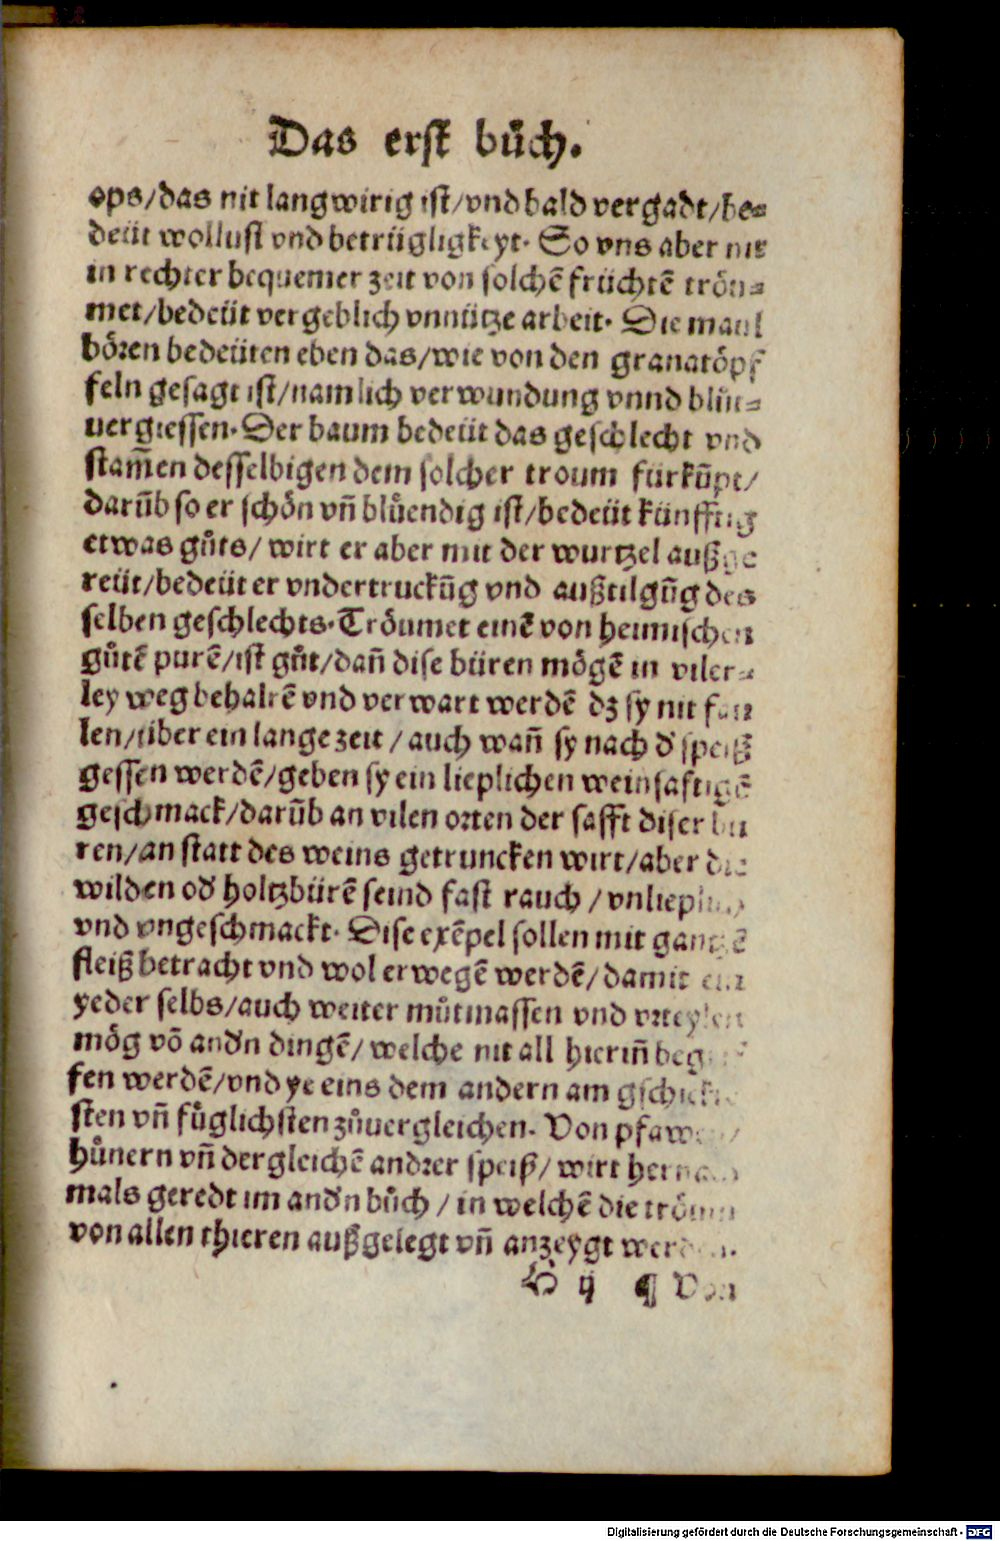 Das erst bůch.
ops/das nit langwirig ist/vnd bald vergadt/be⸗
deüt wollust vnd betrügligkeyt. So vns aber nit
in rechter bequemer zeit von solchẽ früchtẽ tröu⸗
met/bedeüt vergeblich vnnütze arbeit. Die maul
bören bedeüten eben das/wie von den granatöpf
feln gesagt ist/namlich verwundung vnnd blůt⸗
uergiessen. Der baum bedeüt das geschlecht vnd
stam̃en desselbigen dem solcher troum fürkũpt/
darũb so er schön vñ blůendig ist/bedeüt künfftig
etwas gůts/ wirt er aber mit der wurtzel außge
reüt/bedeüt er vndertruckũg vnd außtilgũg des
selben geschlechts. Tröumet einẽ von heimischen
gůtẽ pirẽ/ist gůt/dañ dise büren mögẽ in viler⸗
ley weg behaltẽ vnd verwart werdẽ dz sy nit fau
len/über ein lange zeit / auch wañ sy nach d' speiß
gessen werdẽ/geben sy ein lieplichen weinsaftigẽ
geschmack/darũb an vilen orten der safft diser bü
ren/an statt des weins getruncken wirt/aber die
wilden od' holtzbürẽ seind fast rauch / vnlieplich
vnd vngeschmackt. Dise exẽpel sollen mit gantzẽ
fleiß betracht vnd wol erwegẽ werdẽ/damit ein
yeder selbs/auch weiter můtmassen vnd vrteylen
mög võ and'n dingẽ/ welche nit all hieriñ begrif
fen werdẽ/vnd ye eins dem andern am gschickte
sten vñ fůglichsten zůuergleichen. Von pfawen/
hůnern vñ dergleichẽ andrer speiß/ wirt hernach
mals geredt im and'n bůch / in welchẽ die tröum
von allen thieren außgelegt vñ anzeygt werden.
H ij ¶ Von
Digitalisierung gefördert durch die Deutsche Forschungsgemeinschaft - DFG